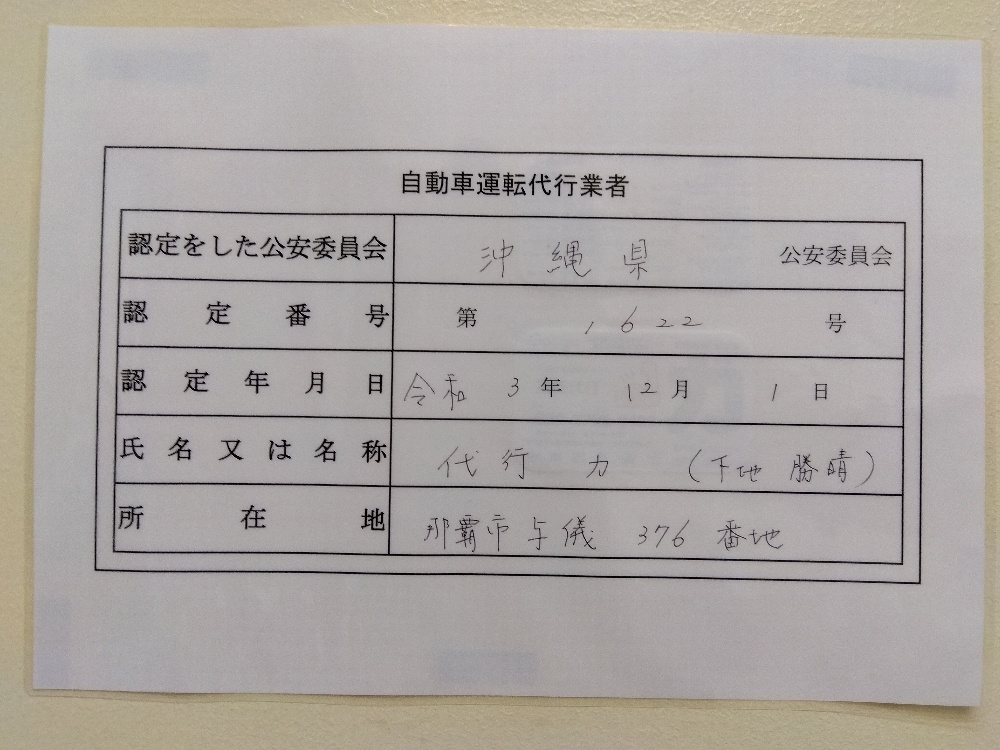 自動車運転代行業者
認定をした公安委員会 沖縄県 公安委員会
認定番号 第 1622 号
認定年月日 令和 3年 12月 1日
氏名又は名称 代行 力 (下地 勝晴)
所在地 那覇市与儀 376番地